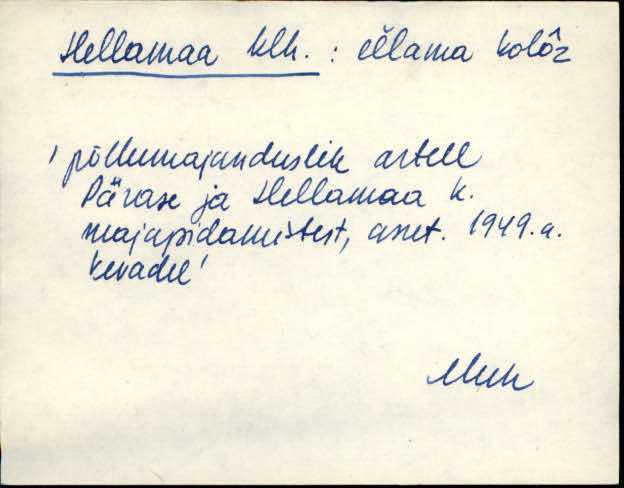 Hellamaa klh. : èllama kolôz
'põllumajanduslik artell
Pärase ja Hellamaa k.
majapidamistest, asut. 1949.a.
kevadel'
Muh